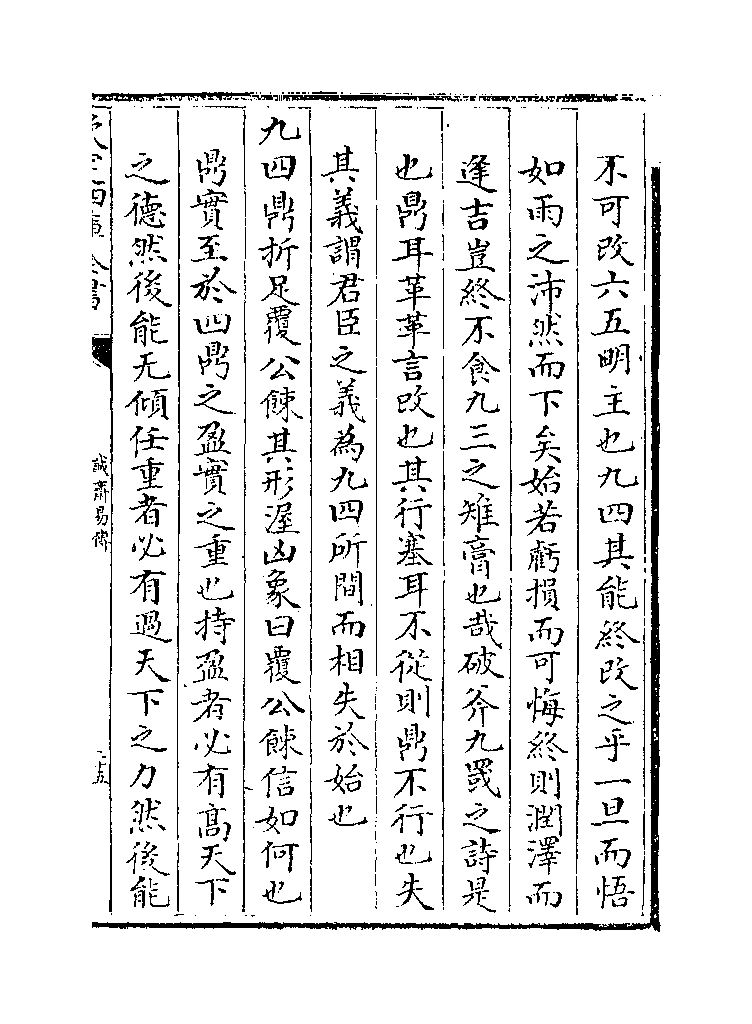 不可改六五明主也九四其能終改之乎一旦而悟
如雨之沛然而下矣始若虧損而可悔終則潤澤而
逢吉豈終不食九三之雉膏也哉破斧九罭之詩是
也鼎耳革革言改也其行塞耳不從則鼎不行也失
其義謂君臣之義為九四所間而相失於始也
九四鼎折足覆公餗其形渥凶象曰覆公餗信如何也
鼎實至於四鼎之盈實之重也持盈者必有髙天下
之德然後能无傾任重者必有過天下之力然後能
欽定四庫全書
誠齋易傳
二十五